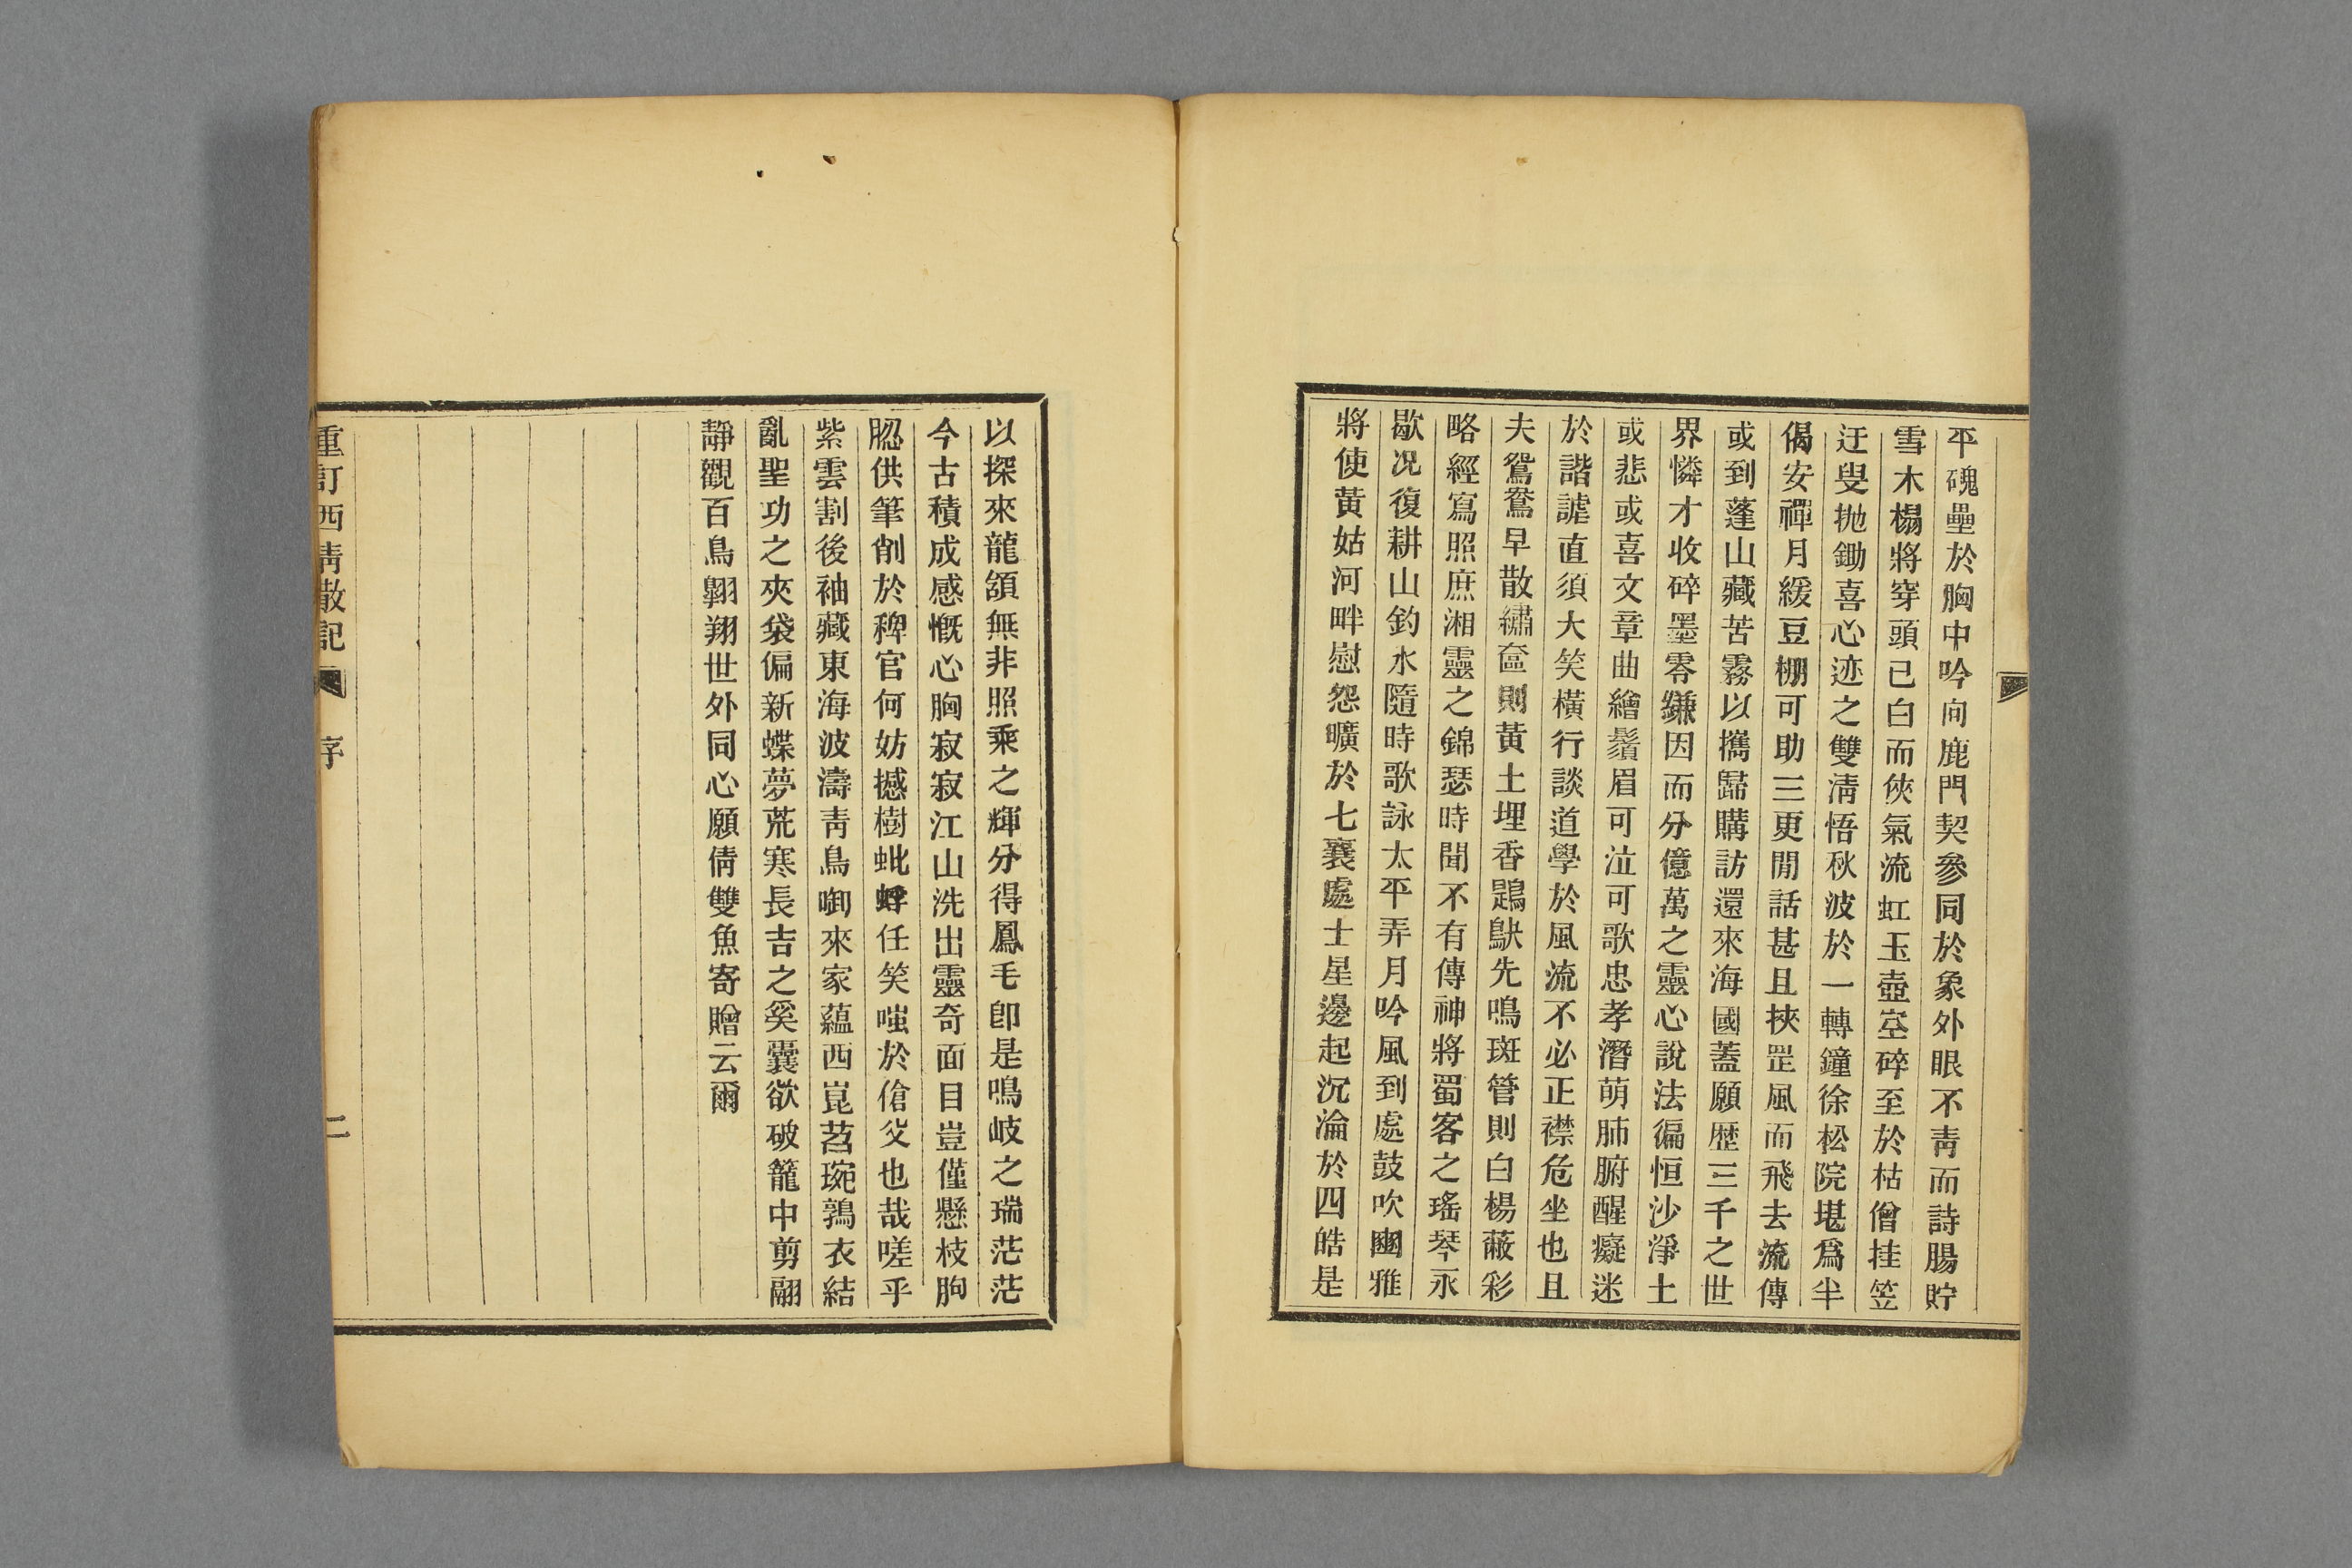 平磈壘於胸中吟向鹿門契參同於象外眼不靑而詩腸貯
雪木榻將穿頭已白而俠氣流虹玉壺堂碎至於枯僧挂笠
迂叟抛鋤喜心迹之雙淸悟秋波於一轉鐘徐松院堪爲半
偈安禪月緩豆棚可助三更閒話甚且挾罡風而飛去流傳
或到蓬山藏苦霧以攜歸購訪還來海國蓋願歷三千之世
界憐才收碎墨零縑因而分億萬之靈心說法徧恒沙淨土
或悲或喜文章曲繪鬚眉可泣可歌忠孝潛萌肺腑醒癡迷
於諧謔直須大笑橫行談道學於風流不必正襟危坐也且
夫鴛鴦早散繡奩則黃土埋香鶗鴃先鳴斑管則白楊蔽彩
略經寫照庶湘靈之錦瑟時聞不有傳神將蜀客之瑤琴永
歇况復耕山釣水隨時歌詠太平弄月吟風到處鼓吹豳雅
將使黃姑河畔慰怨曠於七襄處士星邊起沉淪於四皓是
以探來龍頷無非照乘之輝分得鳳毛卽是鳴岐之瑞茫茫
今古積成感慨心胸寂寂江山洗出靈奇面目豈僅懸枝朐
䏰供筆削於稗官何妨撼樹蚍蜉任笑嗤於傖父也哉嗟乎
紫雲割後袖藏東海波濤靑鳥啣來家蘊西崑苕琬鶉衣結
亂聖功之夾袋偏新蝶夢荒寒長吉之奚囊欲破籠中剪翮
靜觀百鳥翺翔世外同心願倩雙魚寄贈云爾
重訂西淸散記
序
二